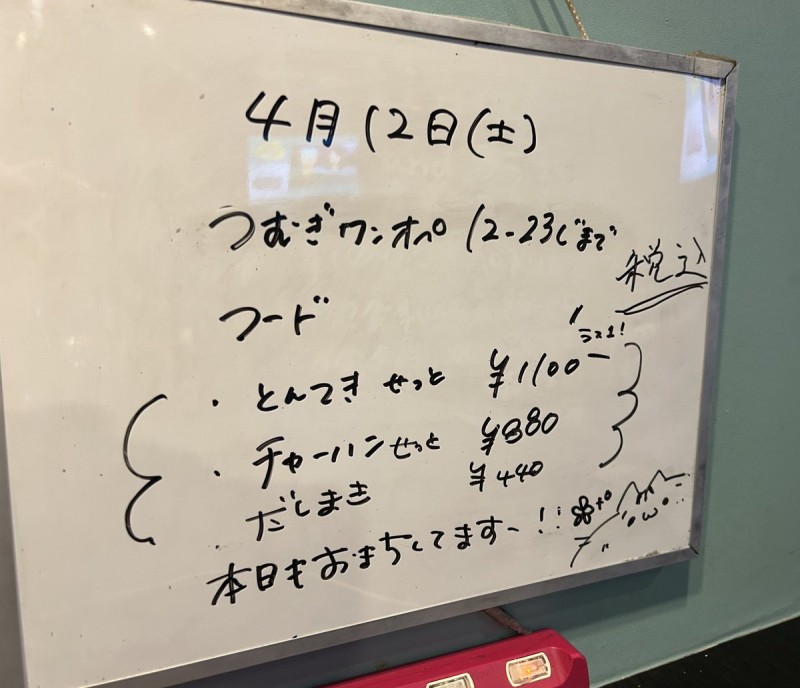 4月12日(土)
つむぎワンオペ 12-23じまで
税込
フード
ラス1!
・とんてき せっと ¥1100
・チャーハンせっと ¥880
だしまき ¥440
本日もおまちしてます〜!!